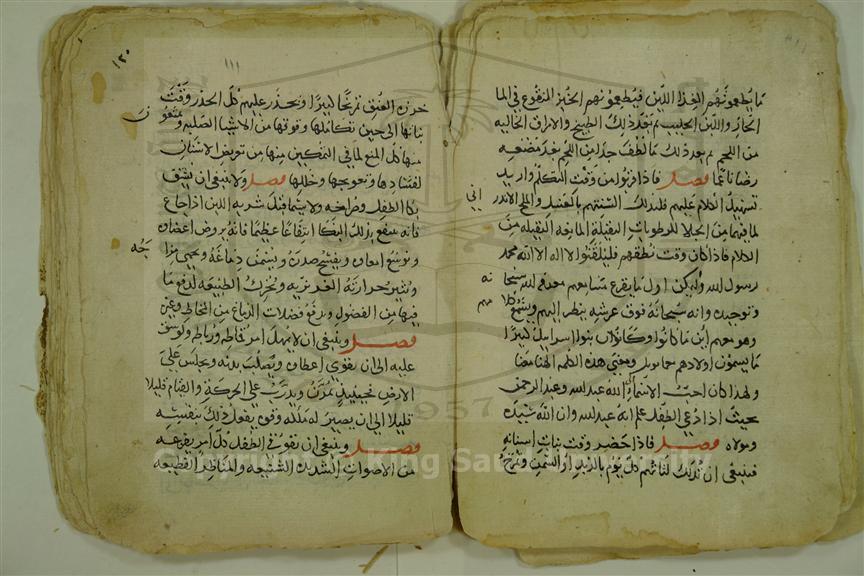 ما يطعمونهم الغذا اللين فيطعمونهم الخبز المنقوع في الما
الحار واللبن الحليب ثم بعد ذلك الطبيخ والامراق الخاليه
من اللحم ثم بعد ذلك ما لطف جدا من اللحم بعد مضغه
رضا ناعما فصل فاذا قربوا من وقت التكلم واريد
تسهيل الكلام عليهم فليدلك السنتهم بالعسل والملح الاندر
اني
لما فيهما من الجلا للرطوبات الثقيلة المانعه الثقيله من
الكلام فاذا كان وقت نطقهم فليلقنوا لا اله الا الله محمد
رسول الله وليكن اول ما يقرع مسامعهم معرفة الله سبحا
نه
وتوحيده وانه سبحانه فوق عرشه ينظر اليهم ويسمع كلا
مهم
وهو معهم اين ما كانوا وكان بنوا اسرائيل كثيرا
ما يسمون اولادهم بعمانويل ومعنى هذه الكلمه الهنا معنا
ولهذا كان احب الاسماء الى الله عبد الله وعبد الرحمن
بحيث اذا وعي الطفل علم انه عبد الله وان الله سيده
ومولاه فصل فاذا حضر وقت نبات اسنانه
فينبغي ان تدلك لثاتهم كل يوم بالزبد او السمن ويمرخ
١٢٠
١١١
خرزه العنق تمريخا كثيرا ويحذر عليهم كل الحذر وقت
نباتها الى حين تكاملها وقوتها من الاشيا الصلبه ويمنعون
منها كل المنع لما في التمكين منها من تعريض الاسنان
لفسادها وتعويجها وخللها فصل ولا ينبغي ان يشق
بكا الطفل وصراخه ولا سيما قبل شربه اللبن اذا جاع
فانه ينتفع بذلك البكا انتفاعا عظيما فانه يروض اعضاه
ويوسع امعاه ويفسح صدره ويسخن دماغه ويحمي مزا
جه
ويثير حرارته الغريزيه ويحرك الطبيعه لدفع ما
فيها من الفضول ويدفع فضلات الدماغ من المخاط وغيره
فصل وينبغي ان لا يهمل امر قماطه ورباطه ولو شق
عليه الى ان يقوى اعضاه ويصلب بدنه ويجلس على
الارض فحينئذ يمرن ويدرب على الحركة والقيام قليلا
قليلا الى ان يصير له ملكه وقوه يفعل ذلك بنفسه
فصل وينبغي ان يقوى في الطفل كل امر يفزعه
من الاصوات الشديدة الشنيعه والمناظر الفظيعه
1957
Copyright © King Saud University